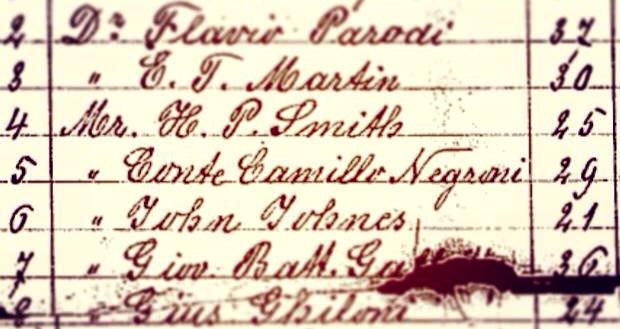 2 Dr. Flavio Parodi 37
3 " E. T. Martin 30
4 Mr. H. P. Smith 25
5 " Conte Camillo Negroni 29
6 " John Johnes 21
7 " Giov. Batt. 36
8 " Gius Ghiloni 24